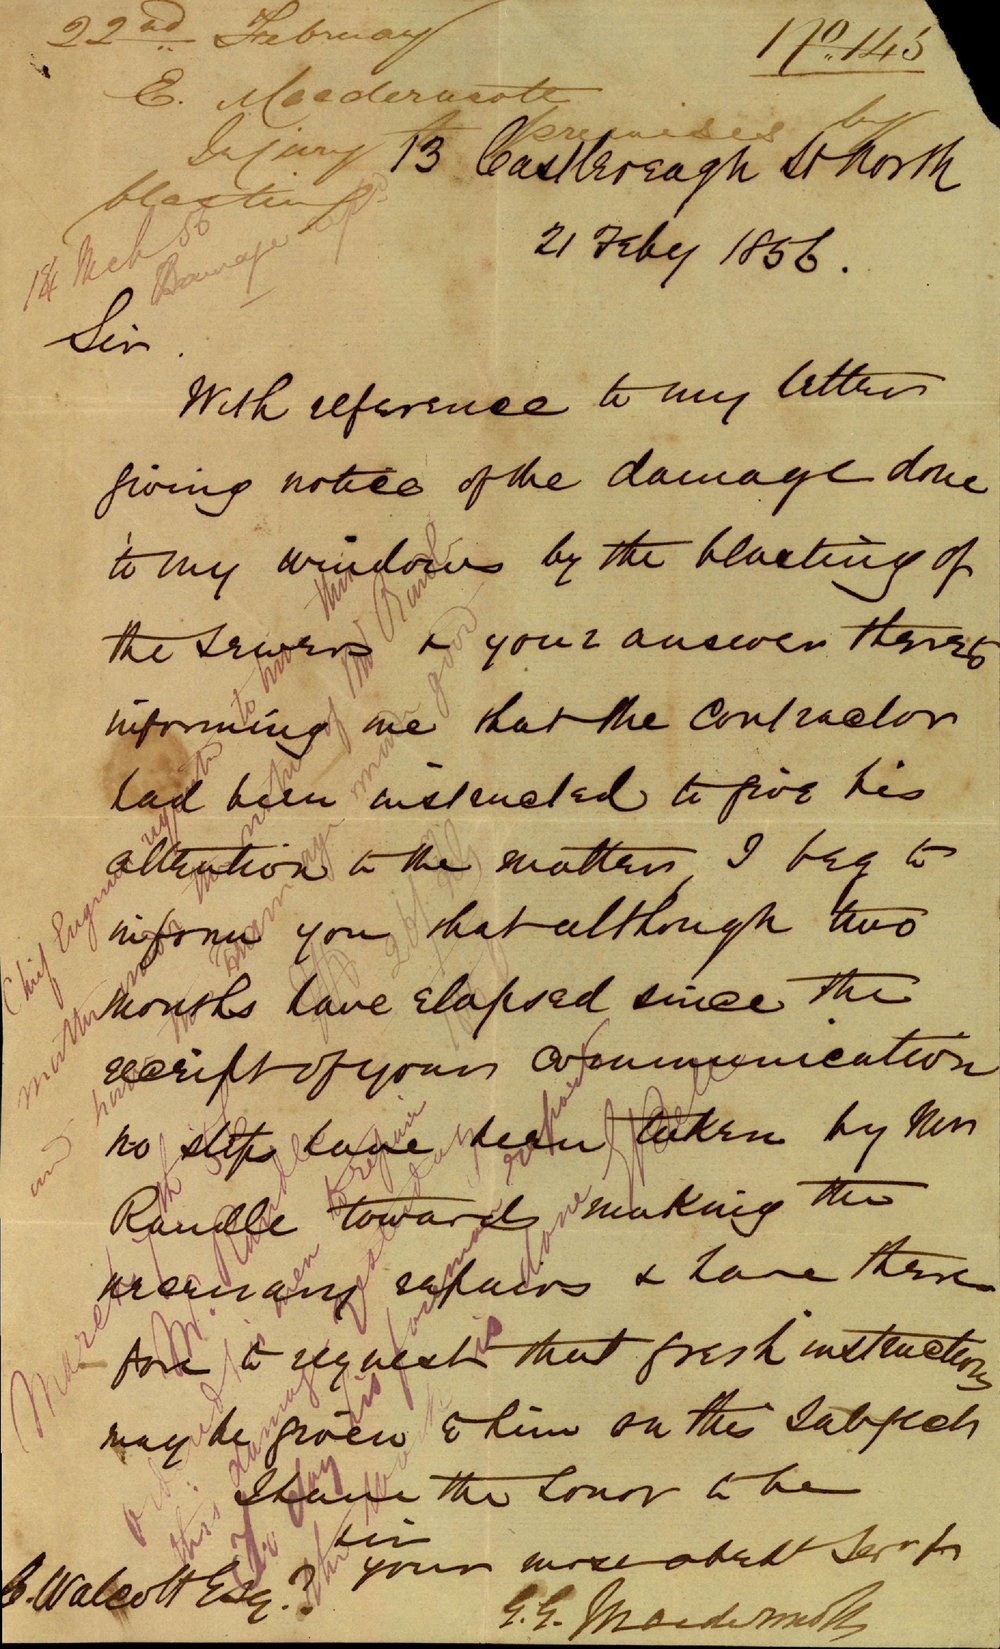 22nd February
No. 145
E. Macdermott
Injury to premises by
blasting
13 Castlereagh St North
21 Feby 1856.
14 Mch 56
Damage
Sir
With reference to my letter
giving notice of the damage done
to my windows by the blasting of
the Sewers & your answer thereto
informing me that the Contractor
had been instructed to give his
attention to the matter, I beg to
inform you that although two
months have elapsed since the
receipt of your communication
no steps have been taken by Mr
Randle towards making the
necessary repairs & have there
fore to request that fresh instructions
may be given to him on this Subject
I have the honor to be
Sir
your most obedt Servt
E. E. Macdermott
C. Walcott Esq.
Chief Engineer to
matter and
and have
March
Mr. Randle
ordered his men to repair
this damage yesterday
to day his foreman reports
the work is done